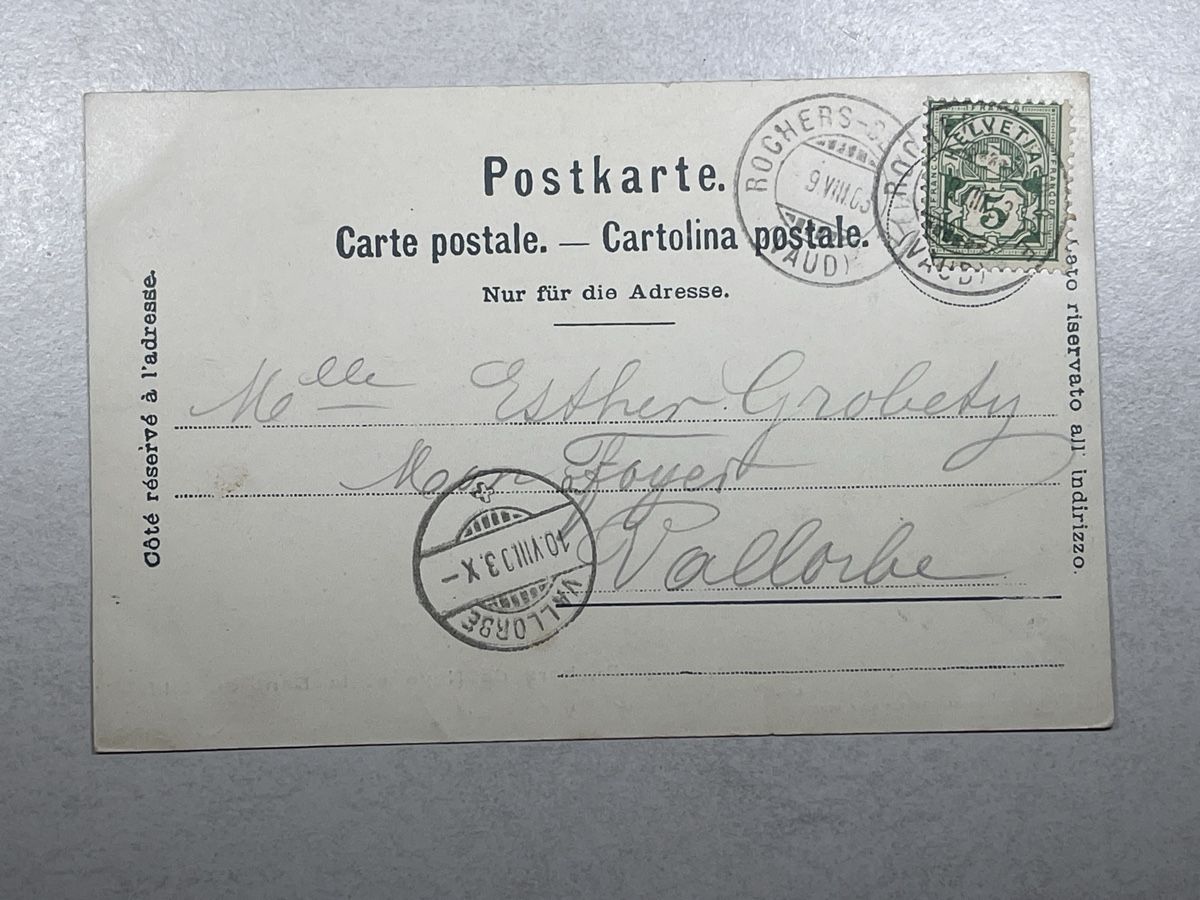 Postkarte.
Carte postale. — Cartolina postale.
Nur für die Adresse.
Côté réservé à l'adresse.
Lato riservato all' indirizzo.
ROCHERS-D
9 VIII.03
(VAUD)
ROCH
VIII
(VAUD)
HELVETIA
FRANCO
5
Mlle Esther Grobety
Mon Foyer
Vallorbe
10.VIII.03.X-
VALLORBE